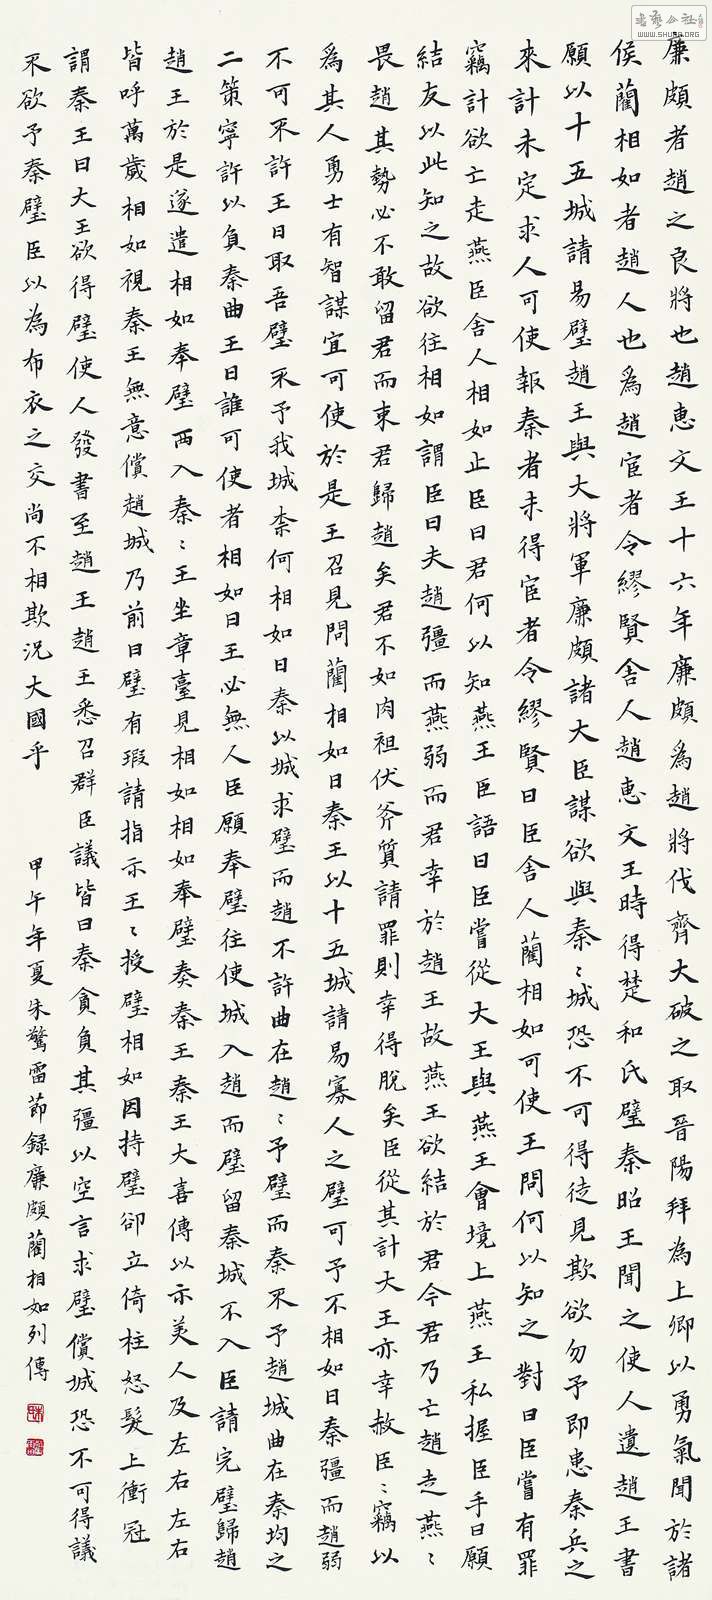 廉頗者趙之良將也趙惠文王十六年廉頗為趙將伐齊大破之取晉陽拜為上卿以勇氣聞於諸
侯藺相如者趙人也為趙宦者令繆賢舍人趙惠文王時得楚和氏璧秦昭王聞之使人遺趙王書
願以十五城請易璧趙王與大將軍廉頗諸大臣謀欲與秦〻城恐不可得徒見欺欲勿予即患秦兵之
來計未定求人可使報秦者未得宦者令繆賢曰臣舍人藺相如可使王問何以知之對曰臣嘗有罪
竊計欲亡走燕臣舍人相如止臣曰君何以知燕王臣語曰臣嘗從大王與燕王會境上燕王私握臣手曰願
結友以此知之故欲往相如謂臣曰夫趙彊而燕弱而君幸於趙王故燕王欲結於君今君乃亡趙走燕〻
畏趙其勢必不敢留君而束君歸趙矣君不如肉袒伏斧質請罪則幸得脫矣臣從其計大王亦幸赦臣〻竊以
為其人勇士有智謀宜可使於是王召見問藺相如曰秦王以十五城請易寡人之璧可予不相如曰秦彊而趙弱
不可不許王曰取吾璧不予我城柰何相如曰秦以城求璧而趙不許曲在趙〻予璧而秦不予趙城曲在秦均之
二策寧許以負秦曲王曰誰可使者相如曰王必無人臣願奉璧往使城入趙而璧留秦城不入臣請完璧歸趙
趙王於是遂遣相如奉璧西入秦〻王坐章臺見相如相如奉璧奏秦王秦王大喜傳以示美人及左右左右
皆呼萬歲相如視秦王無意償趙城乃前曰璧有瑕請指示王〻授璧相如因持璧卻立倚柱怒髮上衝冠
謂秦王曰大王欲得璧使人發書至趙王趙王悉召群臣議皆曰秦貪負其彊以空言求璧償城恐不可得議
不欲予秦璧臣以為布衣之交尚不相欺況大國乎
甲午年夏朱驚雷節錄廉頗藺相如列傳
WWW.SHUFA.ORG